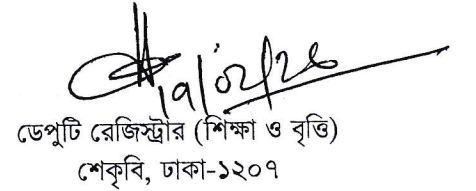 ডেপুটি রেজিস্ট্রার (শিক্ষা ও বৃত্তি)
শেকৃবি, ঢাকা-১২০৭